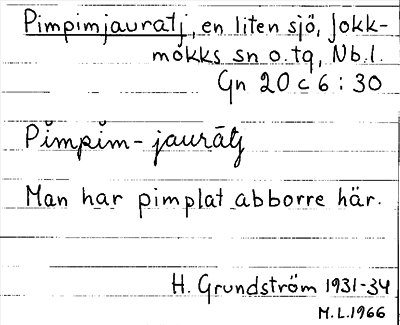 Pimpimjauratj, en liten sjö, Jokk-
mokks sn o. tg, Nb. l.
Gn 20 c 6 : 30
Pĭmpĭm-jaurātj
Man har pimplat abborre här.
H. Grundström 1931-34
M.L. 1966